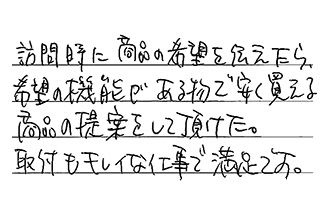 訪問時に商品の希望を伝えたら、
希望の機能がある物で安く買える
商品の提案をして頂けた。
取付もキレイな仕事で満足です。